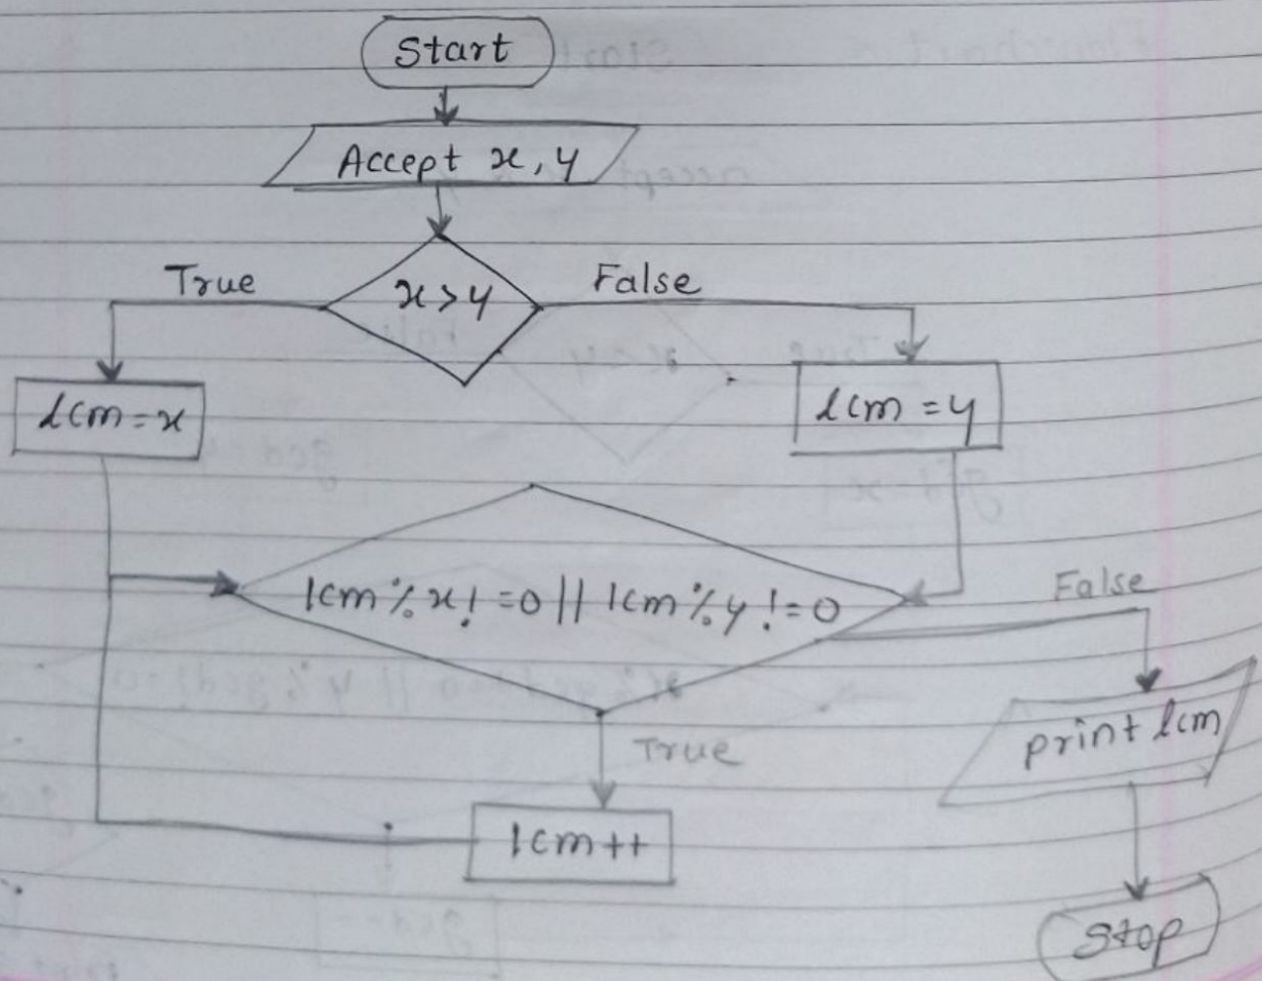 Start
Accept x, y
True
x>y
False
lcm=x
lcm=y
lcm%x!=0||lcm%y!=0
False
True
print lcm
lcm++
Stop